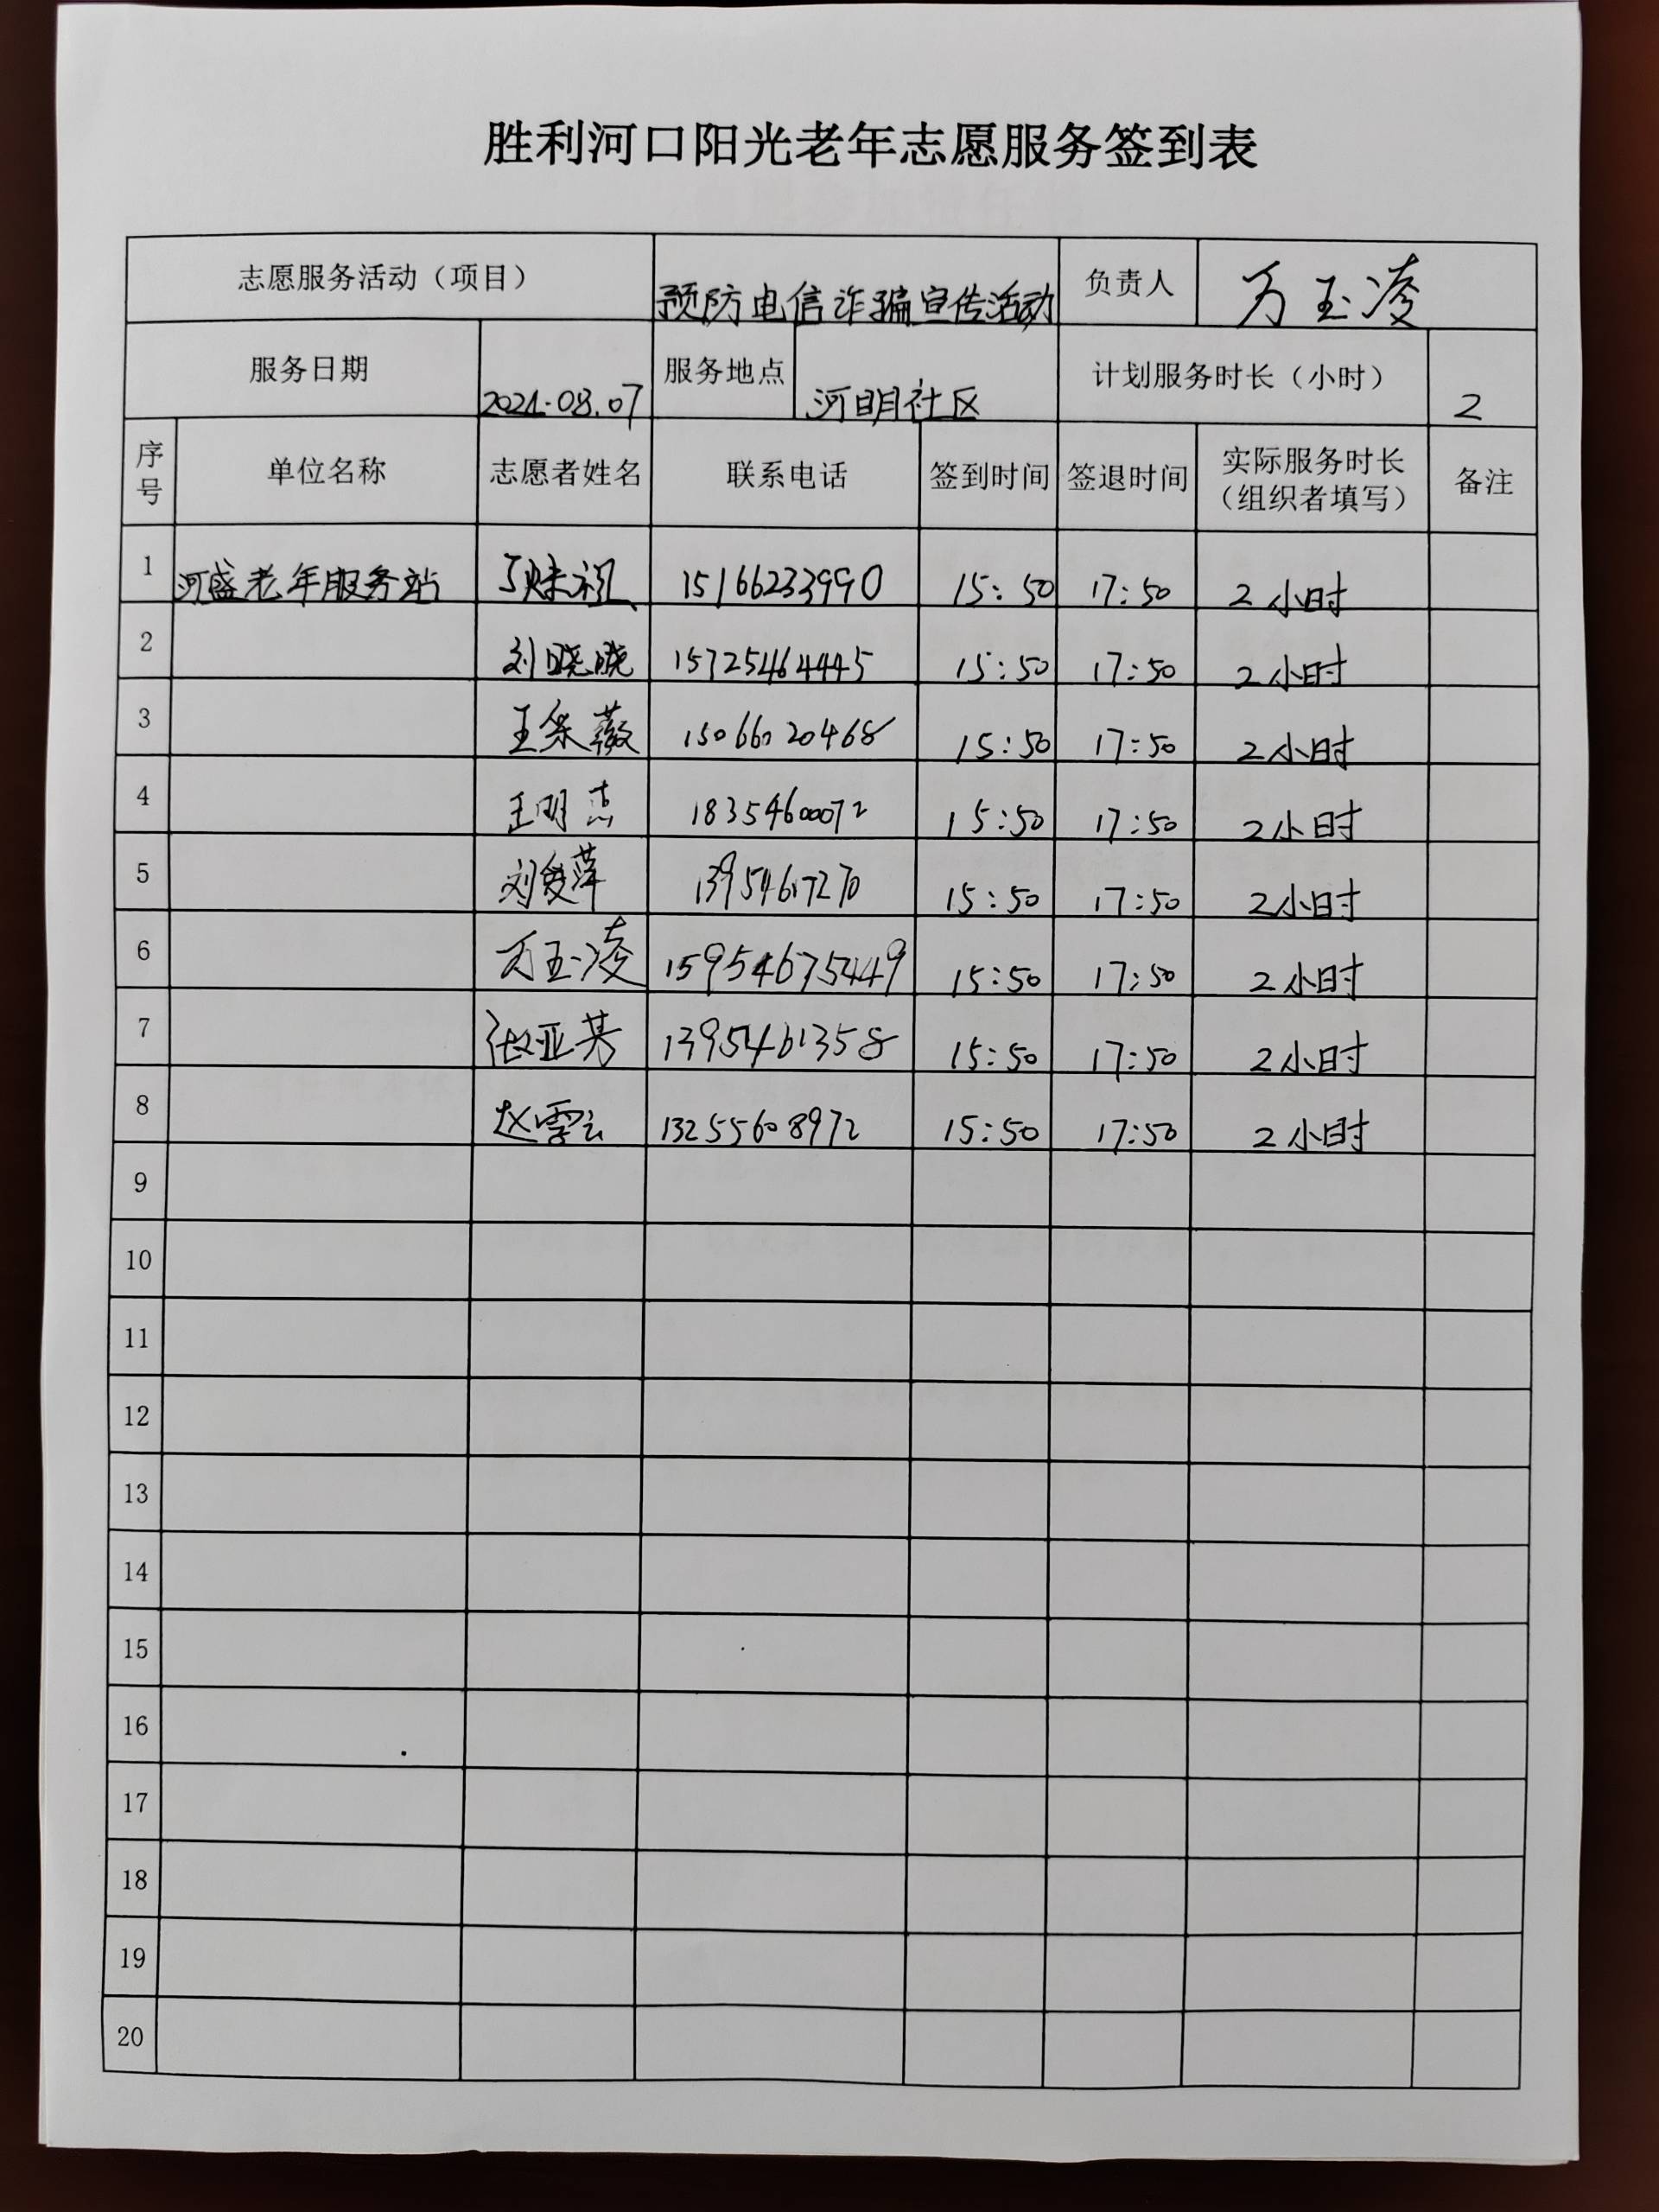 胜利河口阳光老年志愿服务签到表
志愿服务活动（项目） 预防电信诈骗宣传活动 负责人 万玉凌
服务日期 2024.08.07 服务地点 河明社区 计划服务时长（小时） 2
序号 单位名称 志愿者姓名 联系电话 签到时间 签退时间 实际服务时长（组织者填写） 备注
1 河盛老年服务站 15166233990 15:50 17:50 2小时
2 刘晓晓 15725464445 15:50 17:50 2小时
3 王采薇 15066020468 15:50 17:50 2小时
4 王明杰 18354600072 15:50 17:50 2小时
5 刘爱萍 13954617270 15:50 17:50 2小时
6 万玉凌 15954675449 15:50 17:50 2小时
7 张亚芳 1395461358 15:50 17:50 2小时
8 赵雪云 13255608972 15:50 17:50 2小时
9
10
11
12
13
14
15
16
17
18
19
20